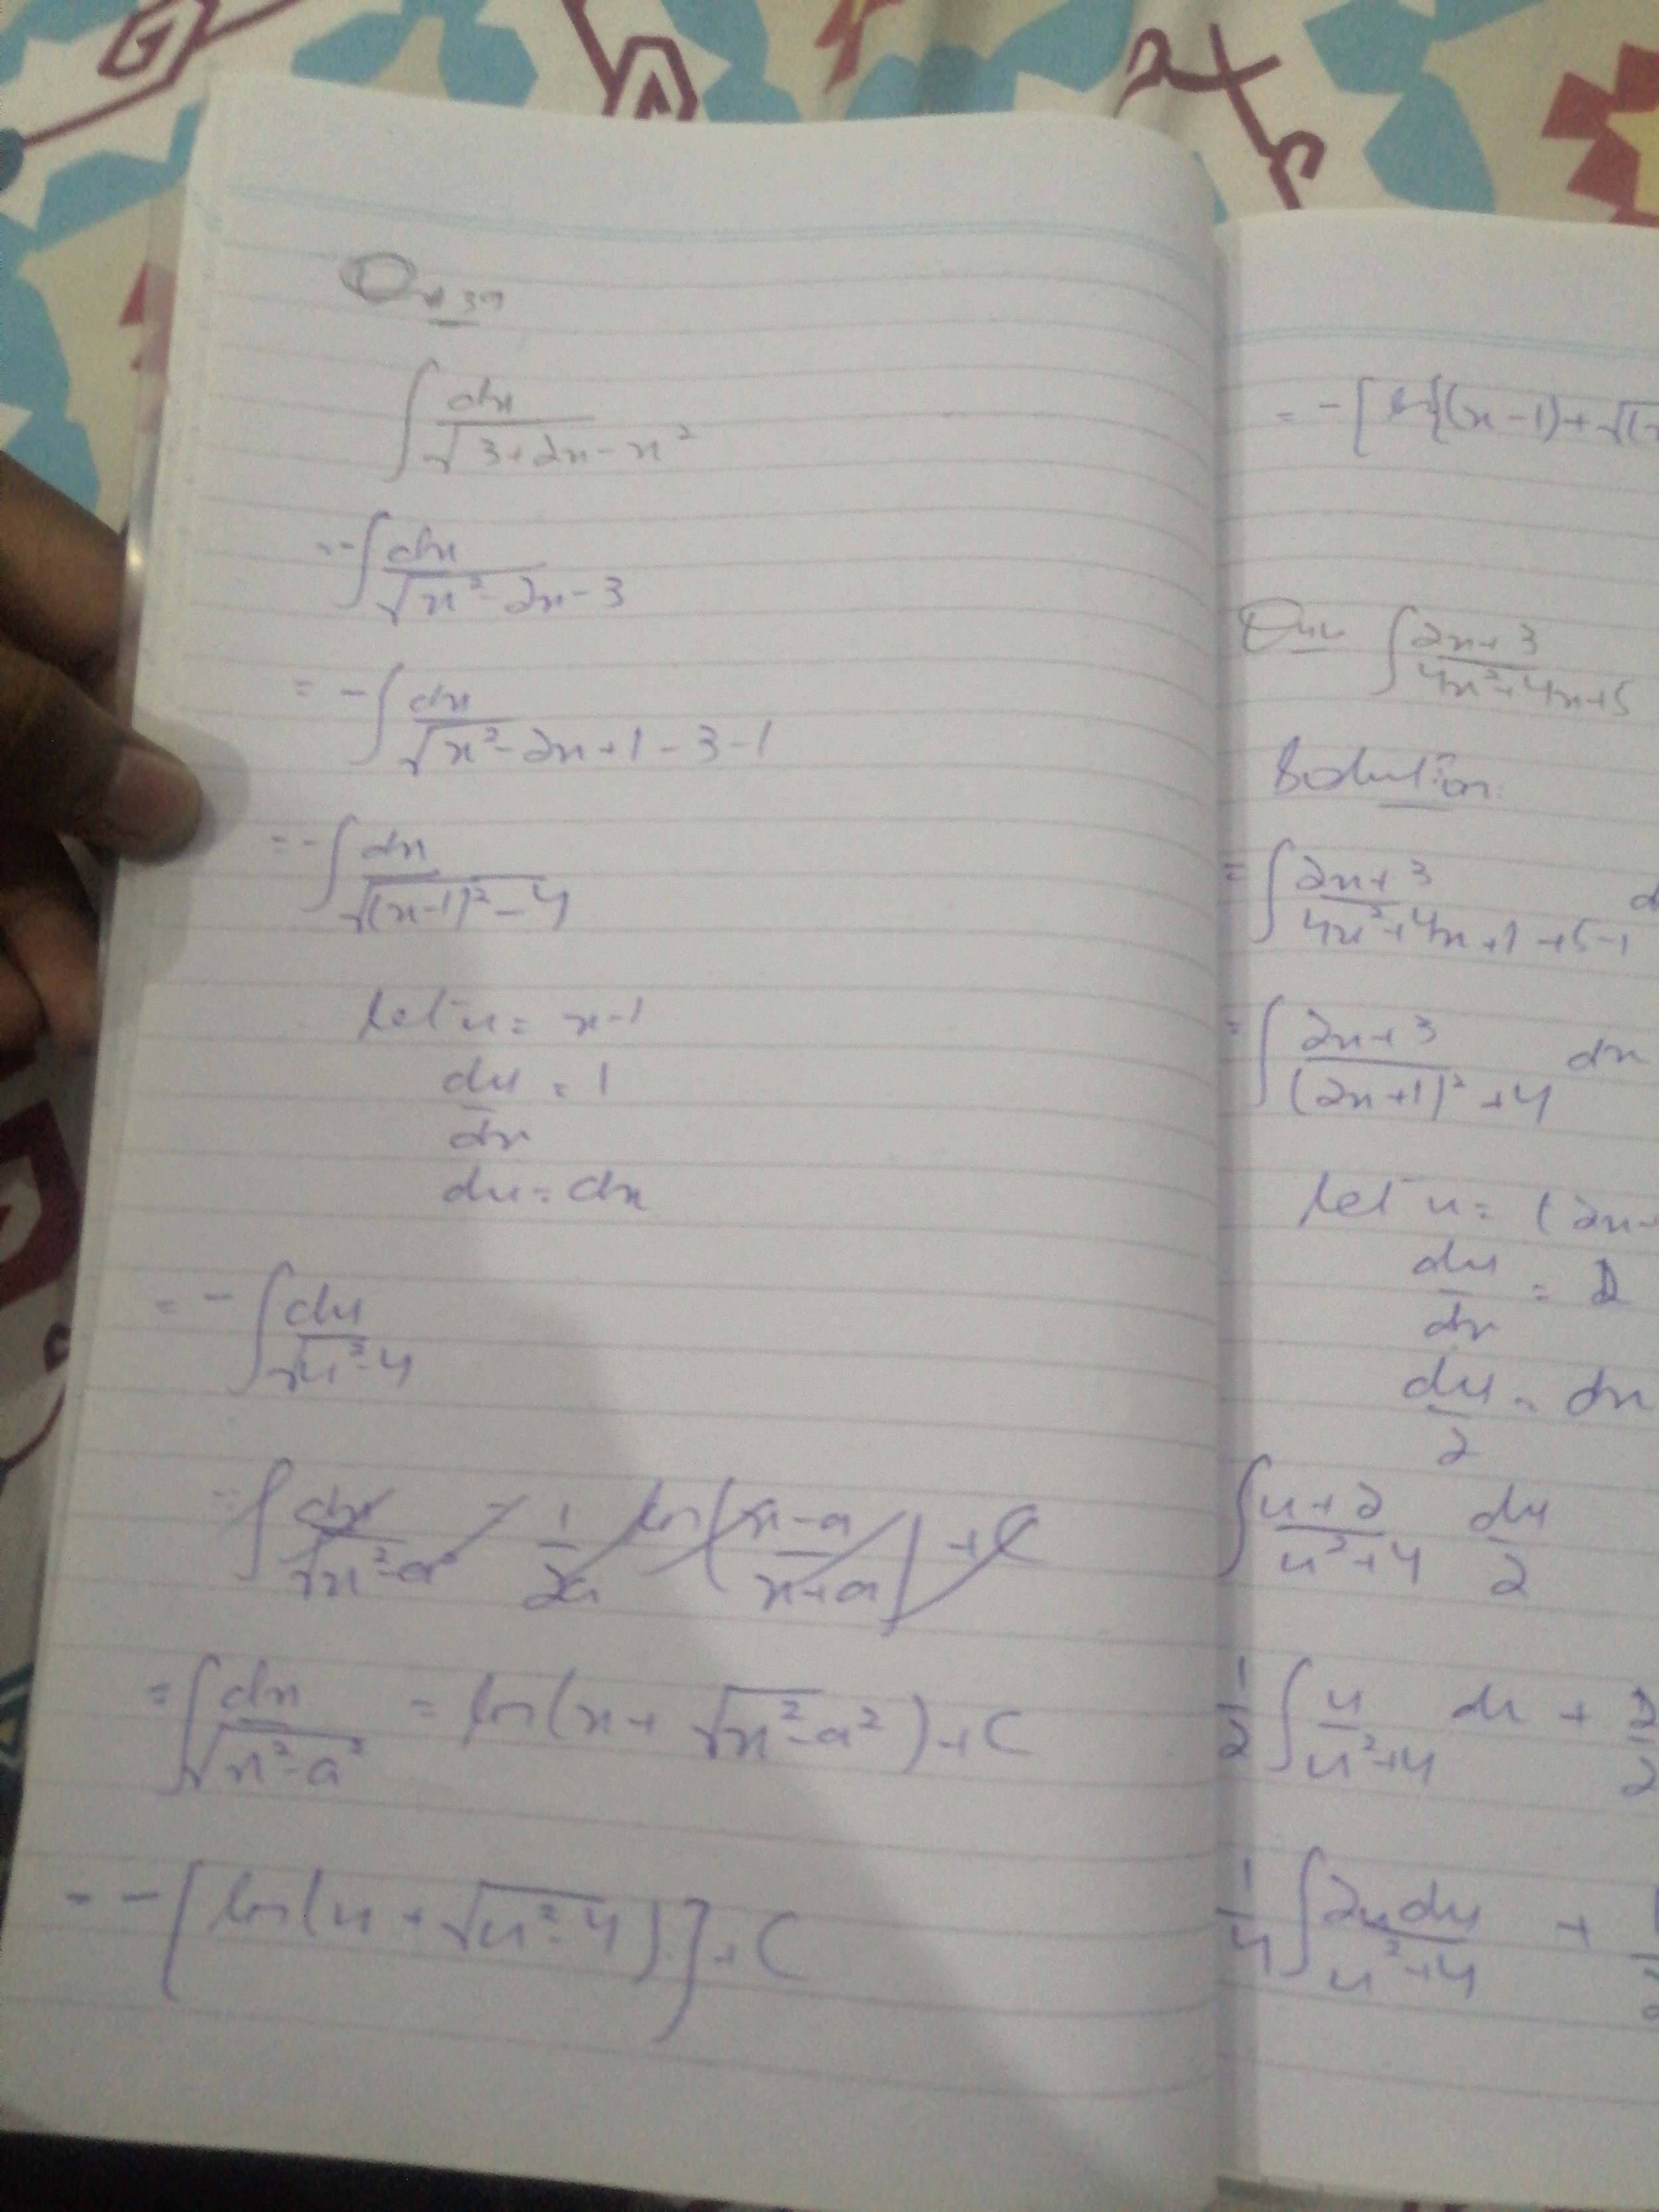 Q 39
∫ dx / √3+2x-x²
= -∫ dx / √x²-2x-3
= -∫ dx / √x²-2x+1-3-1
= -∫ dx / √(x-1)²-4
let u = x-1
du/dx = 1
du = dx
= -∫ du / √u²-4
= ∫ dx / √x²-a² = 1/2a ln(x-a / x+a) + C
= ∫ dx / √x²-a² = ln(x+√x²-a²)+C
= -[ln(u+√u²-4)]+C
= -[ln{(x-1)+√(
∫ 2x+3 / 4x²+4x+5
Solution
= ∫ 2x+3 / 4x²+4x+1+5-1
= ∫ 2x+3 / (2x+1)²+4 dx
let u = (2x
du/dx = 2
du/2 = dx
∫ u+2 / u²+4 du/2
1/2 ∫ u / u²+4 du + 2/2
1/4 ∫ 2u du / u²+4 +